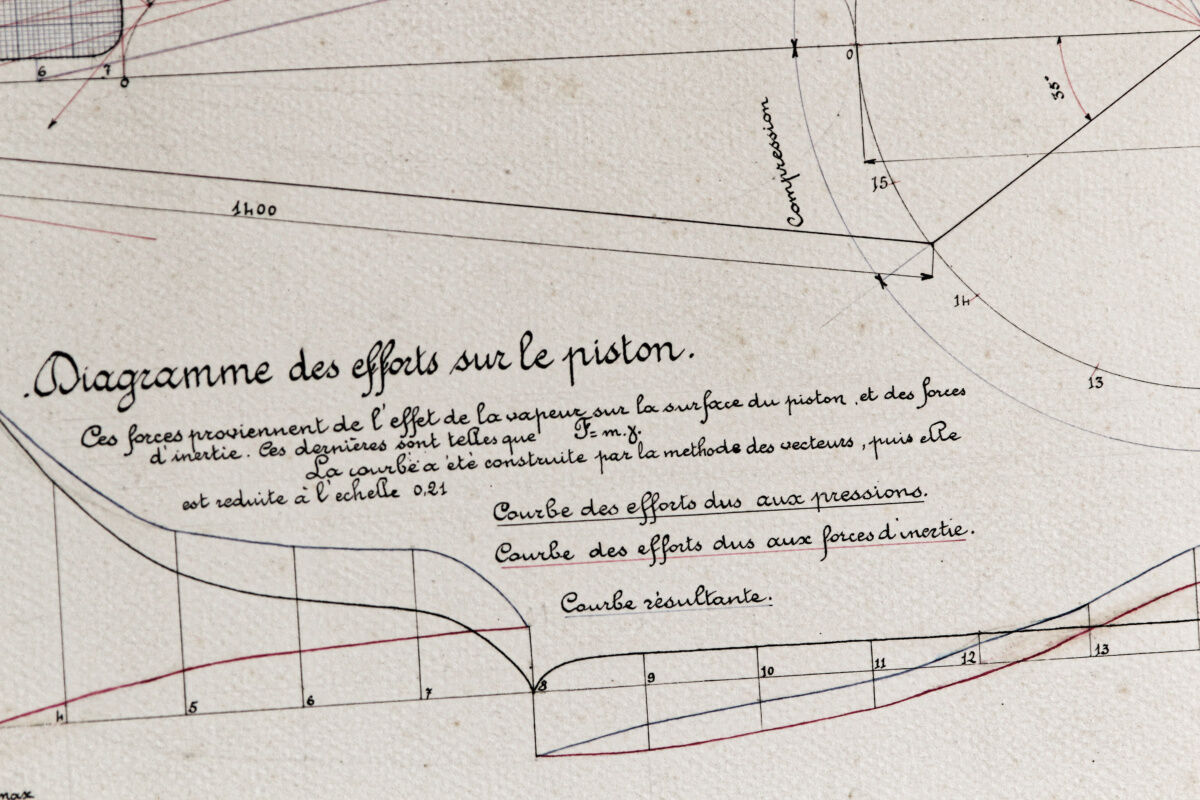 6
7
0
0
35°
Compression
15
1400
14
13
.Diagramme des efforts sur le piston.
Ces forces proviennent de l'effet de la vapeur sur la surface du piston, et des forces
d'inertie. Ces dernières sont telles que F=m.γ.
La courbe a été construite par la methode des vecteurs, puis elle
est reduite à l'echelle 0,21
Courbe des efforts dus aux pressions.
Courbe des efforts dus aux forces d'inertie.
Courbe résultante.
4
5
6
7
8
9
10
11
12
13
max